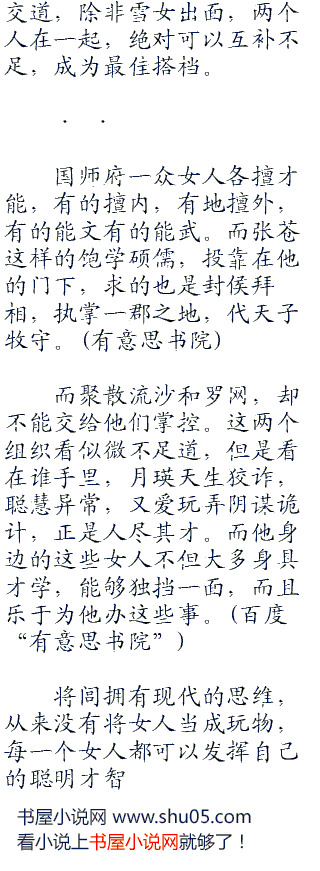 交道，除非雪女出面，两个
人在一起，绝对可以互补不
足，成为最住搭档。
. .
国师府一众女人各擅才
能，有的擅内，有地擅外，
有的能文有的能武。而张苍
这样的饱学硕儒，投靠在他
的门下，求的也是封侯拜
相，执掌一郡之地，代天子
牧守。(有意思书院)
而聚散流沙和罗网，却
不能交给他们掌控。这两个
组织看似微不足道，但是看
在谁手里，月瑛天生狡诈，
聪慧异常，又爱玩弄阴谋诡
计，正是人尽其才。而他身
边的这些女人不但大多身具
才学，能够独挡一面，而且
乐于为他办这些事。(百度
“有意思书院”)
将闾拥有现代的思维，
从来没有将女人当成玩物，
每一个女人都可以发挥自己
的聪明才智
书屋小说网 www.shu05.com
看小说上书屋小说网就够了！